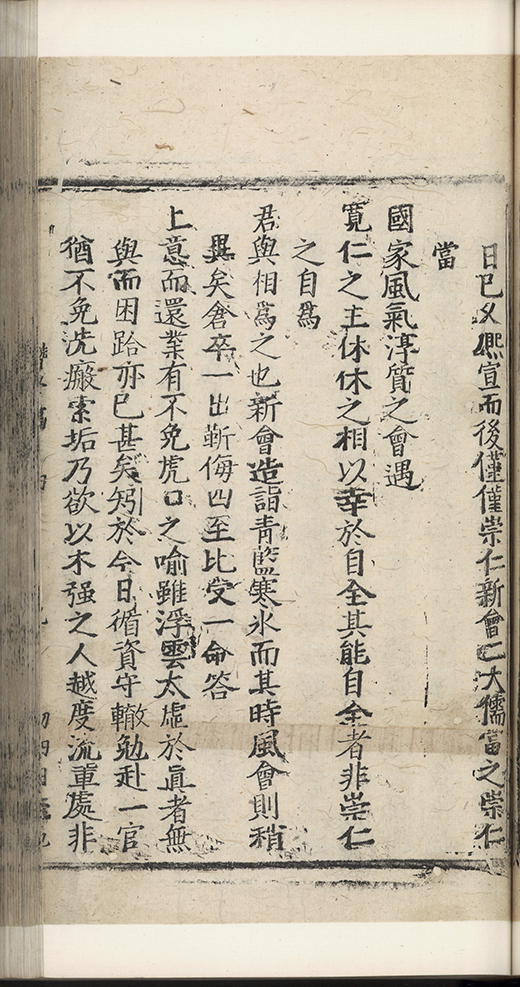 日已又熈宣而後僅僅崇仁新會二大儒當之崇仁
當
國家風氣淳質之會遇
寛仁之主休休之相以幸於自全其能自全者非崇仁
之自為
君與相為之也新會造詣青藍寒氷而其時風會則稍
異矣倉卒一出嶄侮四至比受一命答
上意而還業有不免虎口之喻雖浮雲太虛於眞者無
與而困跲亦已甚矣矧於今日循資守轍勉赴一官
猶不免洗瘢索垢乃欲以木强之人越度流輩處非